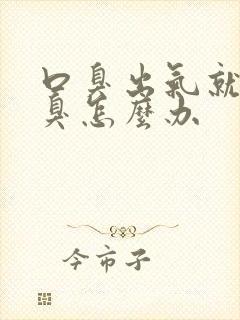 口臭出氣就
臭怎麼办
今市子